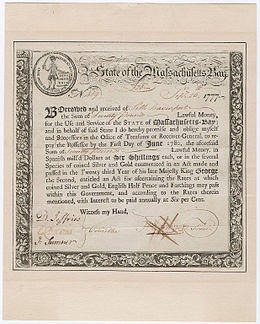 State of the Massachusetts-Bay
1777
Borrowed and received of
the Sum of Lawful Money,
for the Use and Service of the STATE of Massachusetts-Bay;
and in behalf of said State I do hereby promise and oblige myself
and Successors in the Office of Treasurer or Receiver-General, to re-
pay the Possessor by the First Day of June 1782, the aforesaid
Sum of Lawful Money, in
Spanish mill'd Dollars at Six Shillings each, or in the several
Species of coined Silver and Gold enumerated in an Act made and
passed in the Twenty third Year of his late Majesty King George
the Second, entitled an Act for ascertaining the Rates at which
coined Silver and Gold, English Half Pence and Farthings may pass
within this Government, and according to the Rates therein
mentioned, with Interest to be paid annually at Six per Cent.
Witness my Hand,
D. Jeffries